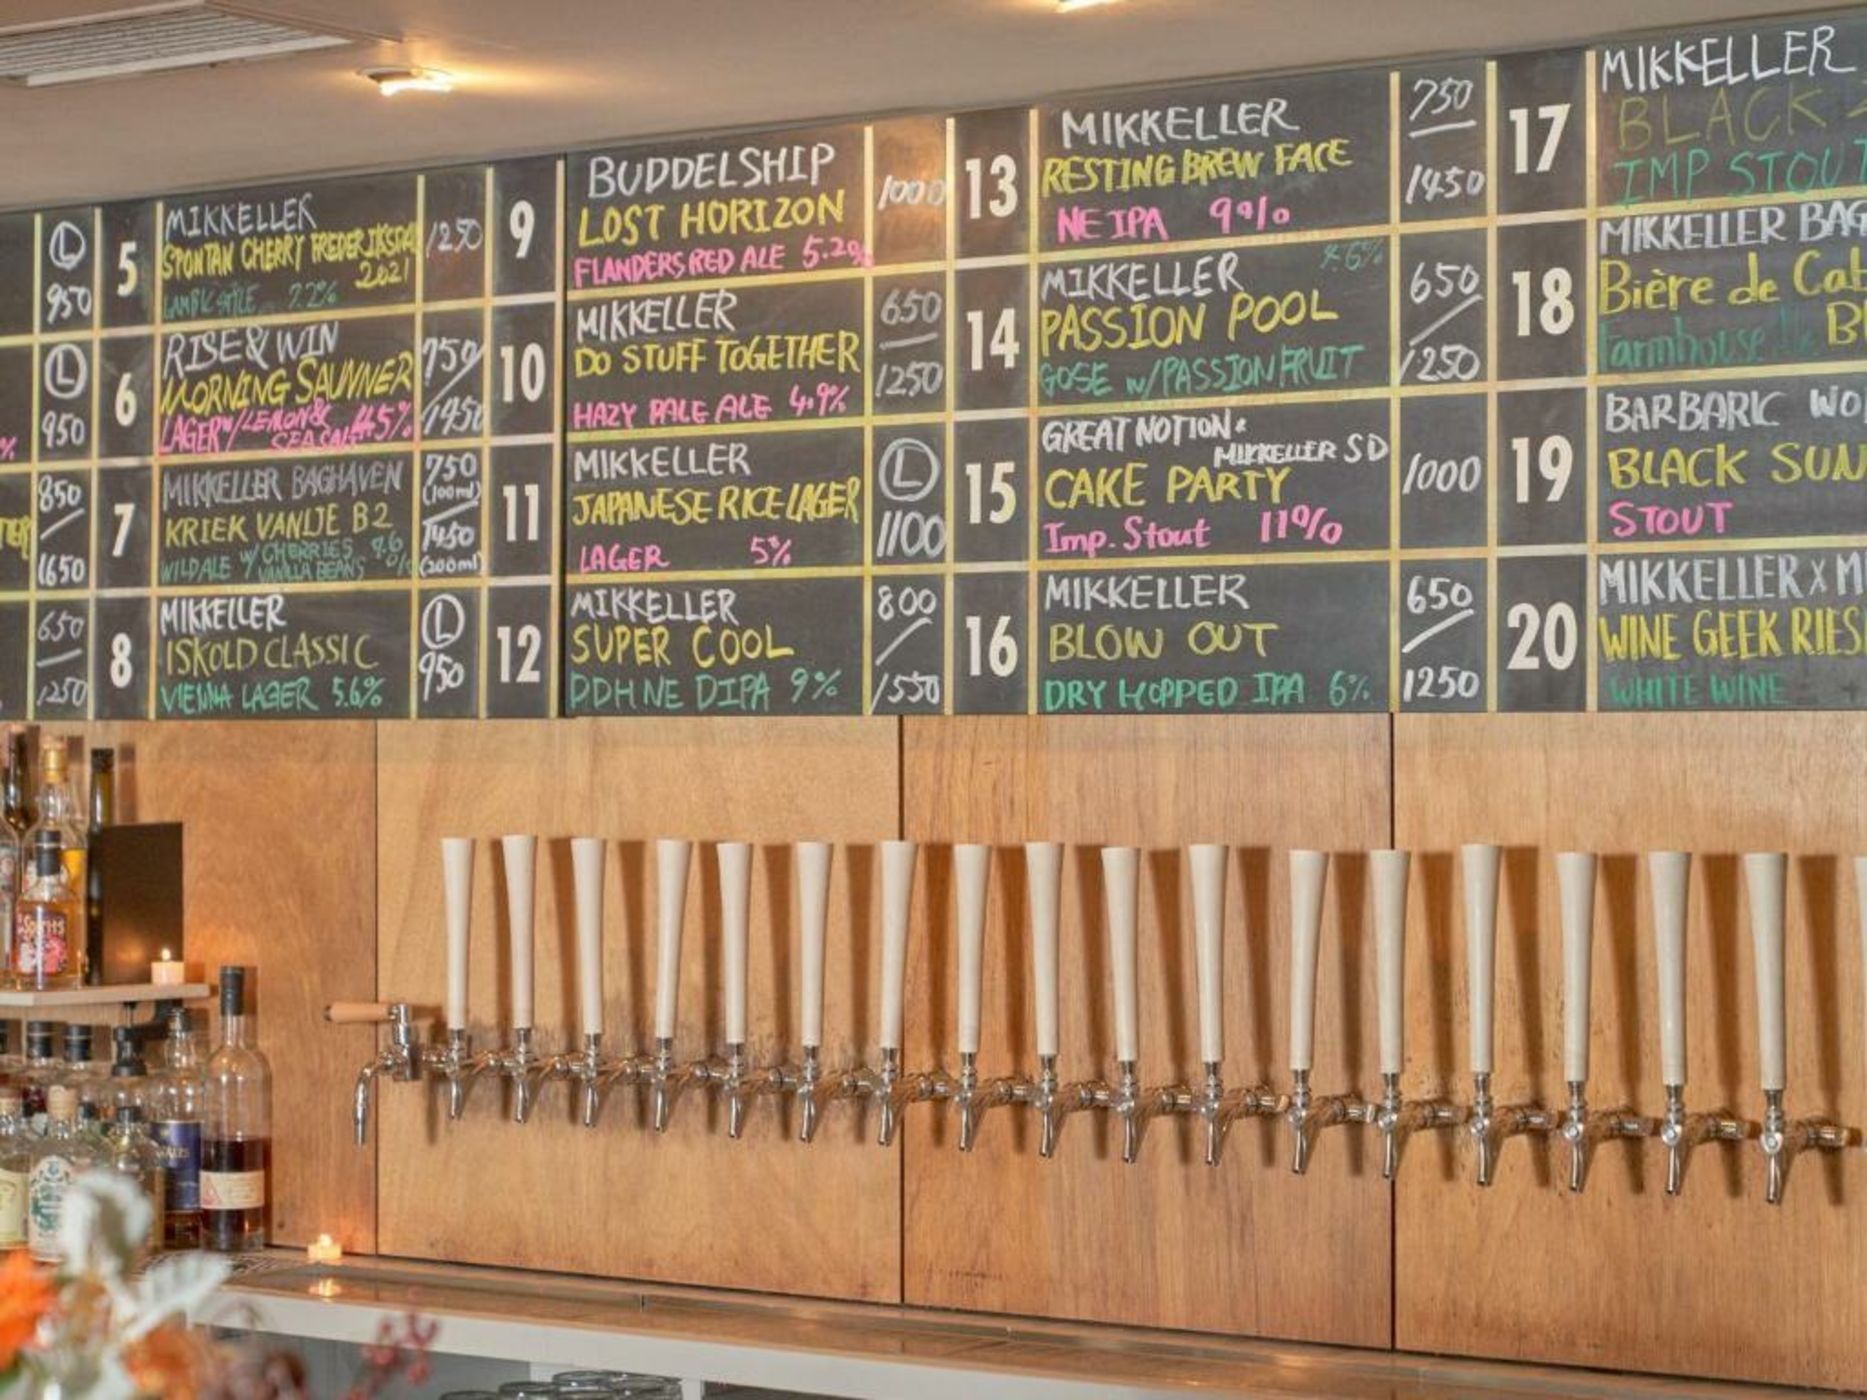 Ⓛ
950
Ⓛ
950
%
850
1650
650
1250
5
MIKKELLER
SPONTAN CHERRY FREDERIKSDAL
2021
LAMBIC STYLE 7.2%
1250
6
RISE & WIN
MORNING
LAGER W/LEMON &
SEA SALT 4.5%
750
1450
7
MIKKELLER BAGHAVEN
KRIEK VANLJE B2
WILD ALE W/ CHERRIES
VANILLA BEANS
750
(100ml)
1450
(200ml)
8
MIKKELLER
ISKOLD CLASSIC
VIENNA LAGER 5.6%
Ⓛ
950
9
BUDDELSHIP
LOST HORIZON
FLANDERS RED ALE 5.2%
1000
10
MIKKELLER
DO STUFF TOGETHER
HAZY PALE ALE 4.9%
650
1250
11
MIKKELLER
JAPANESE RICE LAGER
LAGER 5%
Ⓛ
1100
12
MIKKELLER
SUPER COOL
DDH NE DIPA 9%
800
1550
13
MIKKELLER
RESTING BREW FACE
NE IPA 9%
750
1450
14
MIKKELLER
PASSION POOL
GOSE W/PASSIONFRUIT
650
1250
15
GREAT NOTION &
MIKKELLER SD
CAKE PARTY
Imp. Stout 11%
1000
16
MIKKELLER
BLOW OUT
DRY HOPPED IPA 6%
650
1250
17
MIKKELLER
BLACK
IMP STOUT
18
MIKKELLER BAG
Bière de Cat
Farmhouse
19
BARBARIC WO
BLACK SUN
STOUT
20
MIKKELLER X M
WINE GEEK RIES
WHITE WINE